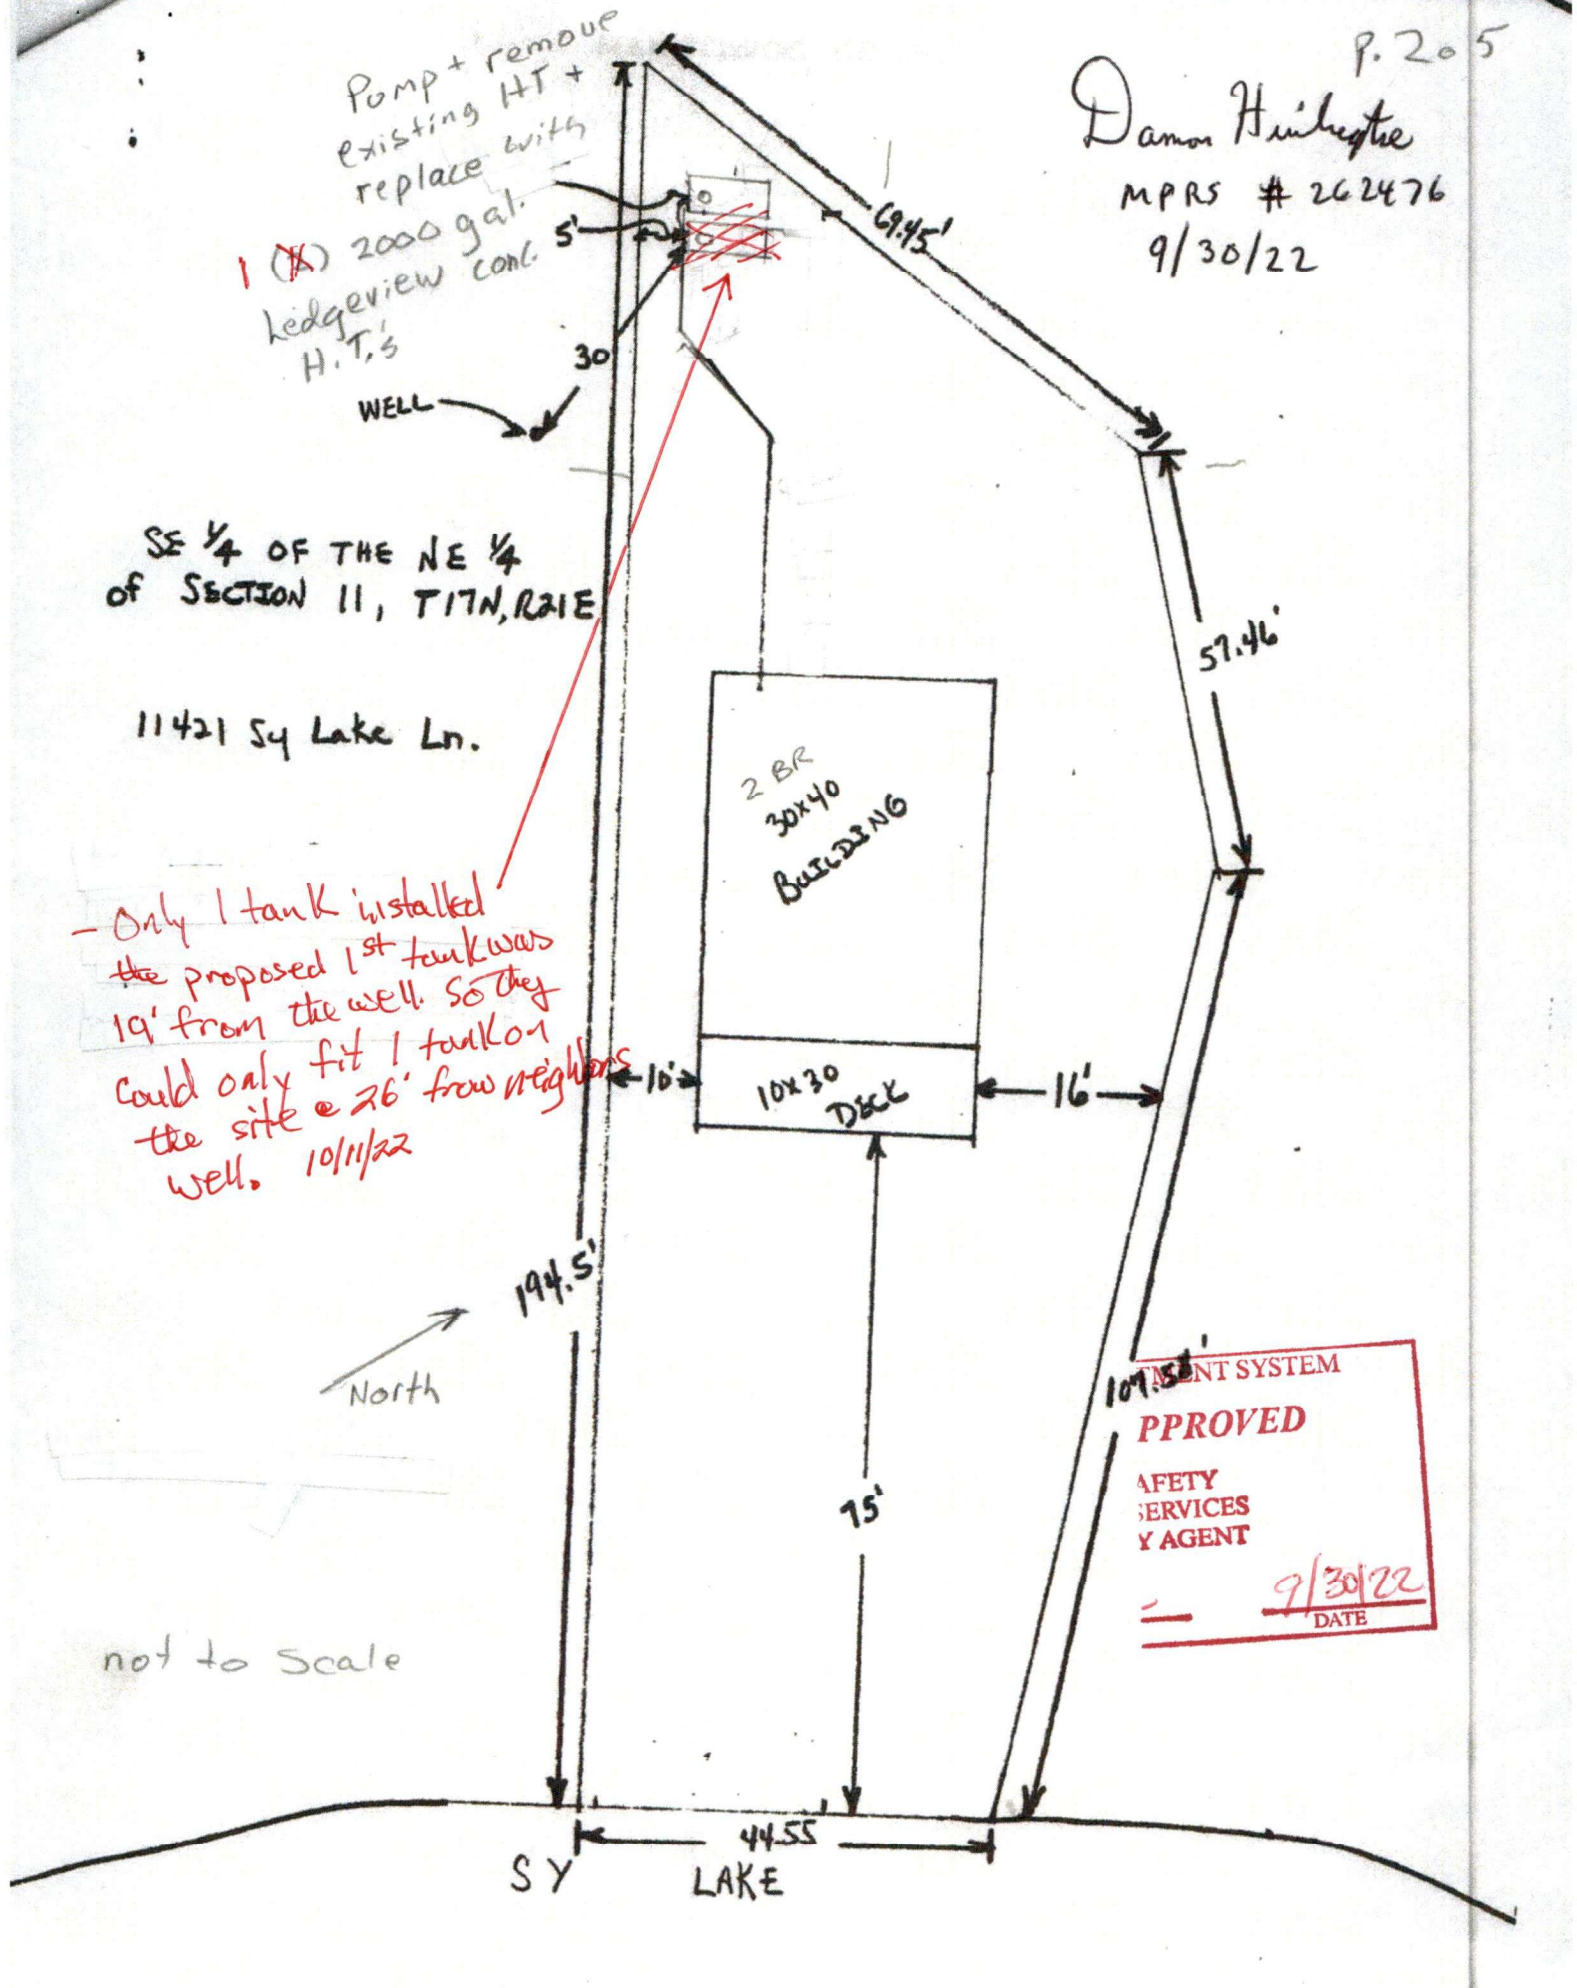 P. 2 o 5
Damon
MPRS # 262476
9/30/22
Pump + remove
existing HT +
replace with
1 (X) 2000 gal.
Ledgeview conc.
H.T.'s
5'
30
WELL
69.45'
57.46'
SE 1/4 OF THE NE 1/4
of SECTION 11, T17N, R21E
11421 Sy Lake Ln.
2 BR
30x40
BUILDING
- Only 1 tank installed
the proposed 1st tank was
19' from the well. So they
could only fit 1 tank on
the site @ 26' from neighbors
well. 10/11/22
10'
10x30
DECK
16'
194.5'
North
107.58'
TMENT SYSTEM
PPROVED
AFETY
SERVICES
Y AGENT
9/30/22
DATE
75'
not to Scale
44.55
SY LAKE